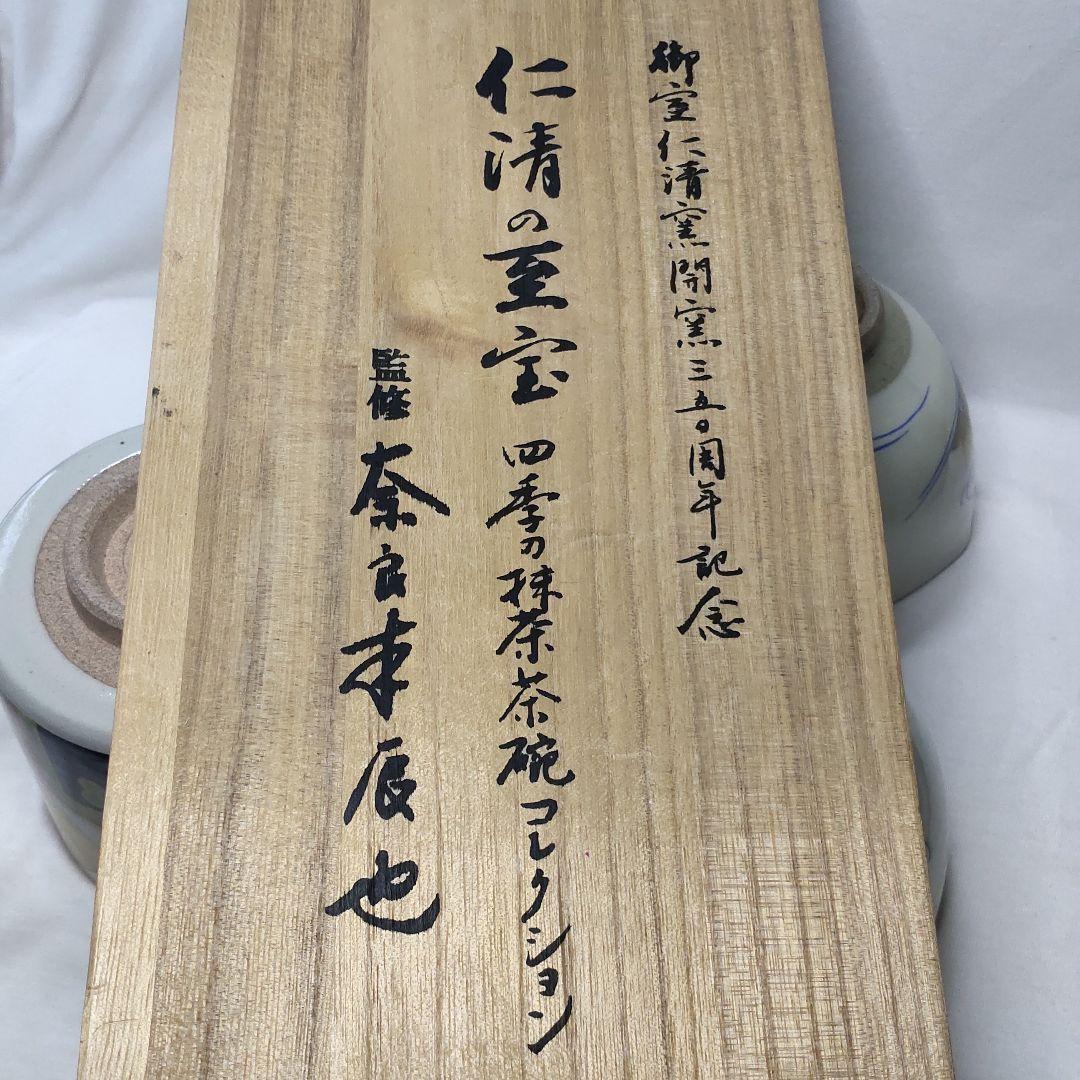 御室仁清窯開窯三五〇周年記念
仁清の至宝 四季の抹茶茶碗コレクション
監修 奈良本辰也